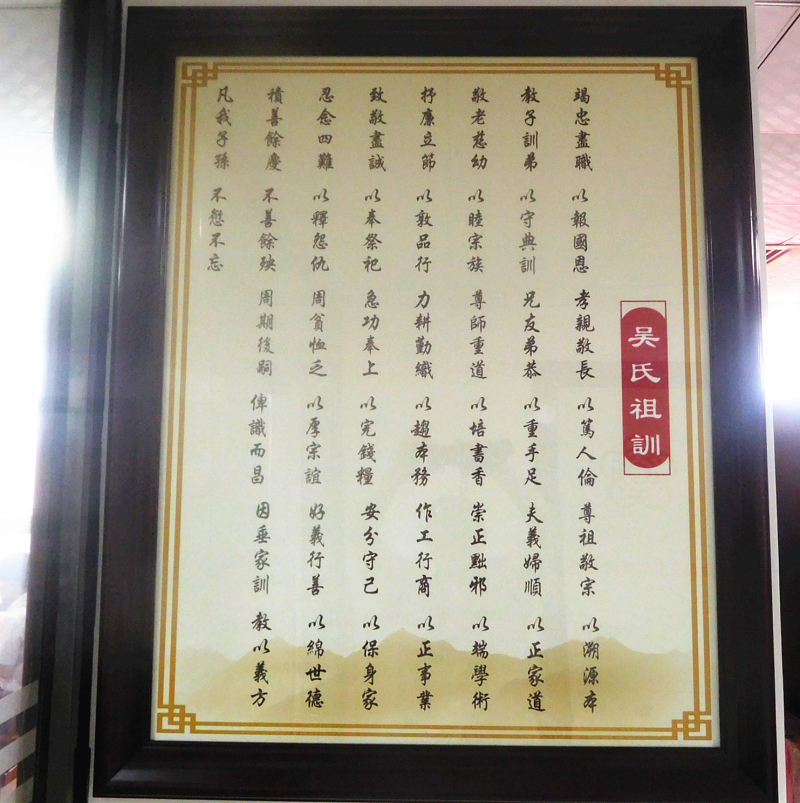 吴氏祖訓
竭忠盡職 以報國恩 孝親敬長 以篤人倫 尊祖敬宗 以溯源本
教子訓弟 以守典訓 兄友弟恭 以重手足 夫義婦順 以正家道
敬老慈幼 以睦宗族 尊師重道 以培書香 崇正黜邪 以端學術
抒廉立節 以敦品行 力耕勤織 以趨本務 作工行商 以正事業
致敬盡誠 以奉祭祀 急功奉上 以完錢糧 安分守己 以保身家
忍念四難 以釋怨仇 周貧恤乏 以厚宗誼 好義行善 以綿世德
積善餘慶 不善餘殃 周期後嗣 俾識而昌 因垂家訓 教以義方
凡我子孫 不愆不忘